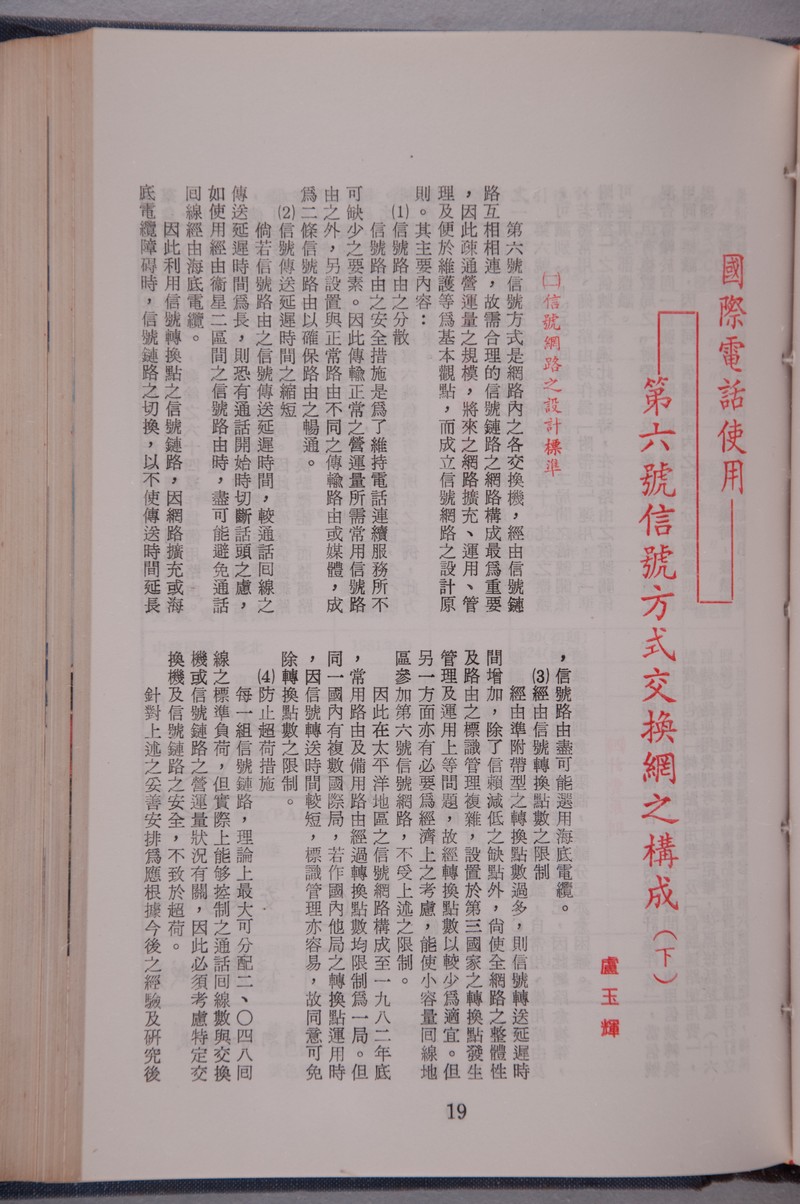 國際電話使用
第六號信號方式交換網之構成（下）
盧玉輝
㈡信號網路之設計標準
第六號信號方式是網路內之各交換機，經由信號鏈
路互相相連，故需合理的信號鏈路之網路構成最爲重要
，因此疎通營運量之規模，將來之網路擴充、運用、管
理及便於維護等爲基本觀點，而成立信號網路之設計原
則。其主要內容：
⑴信號路由之分散
信號路由之安全措施是爲了維持電話連續服務所不
可缺少之要素。因此傳輸正常之營運量所需常用信號路
由之外，另設置與正常路由不同之傳輸路由或媒體，成
爲二條信號路由以確保路由之暢通。
⑵信號傳送延遲時間之縮短
倘若信號路由之信號傳送延遲時間，較通話回線之
傳送延遲時間爲長，則恐有通話開始時切斷話頭之慮，
如使用經由衞星二區間之信號路由時，盡可能避免通話
回線經由海底電纜。
因此利用信號轉換點之信號鏈路，因網路擴充或海
底電纜障碍時，信號鏈路之切換，以不使傳送時間延長
，信號路由盡可能選用海底電纜。
⑶經由信號轉換點數之限制
經由準附帶型之轉換點數過多，則信號轉送延遲時
間增加，除了信賴減低之缺點外，尙使全網路之整體性
及路由之標識管理複雜，設置於第三國家之轉換點發生
管理及運用上等問題，故經轉換點數以較少爲適宜。但
另一方面亦有必要爲經濟上之考慮，能使小容量回線地
區參加第六號信號網路，不受上述之限制。
因此在太平洋地區之信號網路構成至一九八二年底
，常用路由及備用路由經過轉換點數均限制爲一局。但
同一國內有複數國際局，若作國內他局之轉換點運用時
，因信號轉送時間較短，標識管理亦容易，故同意可免
除轉換點數之限制。
⑷防止超荷措施
每一組信號鏈路，理論上最大可分配二、〇四八回
線之標準負荷，但實際上能够控制之通話回線數與交換
機或信號鏈路之營運量狀況有關，因此必須考慮特定交
換機及信號鏈路之安全，不致於超荷。
針對上述之妥善安排爲應根據今後之經驗及研究後
19